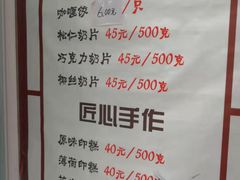 咖喱饺 6.00元/只
松仁奶片 45元/500克
巧克力奶片 45元/500克
椰丝奶片 45元/500克
匠心手作
原味印糕 40元/500克
薄荷印糕 40元/500克